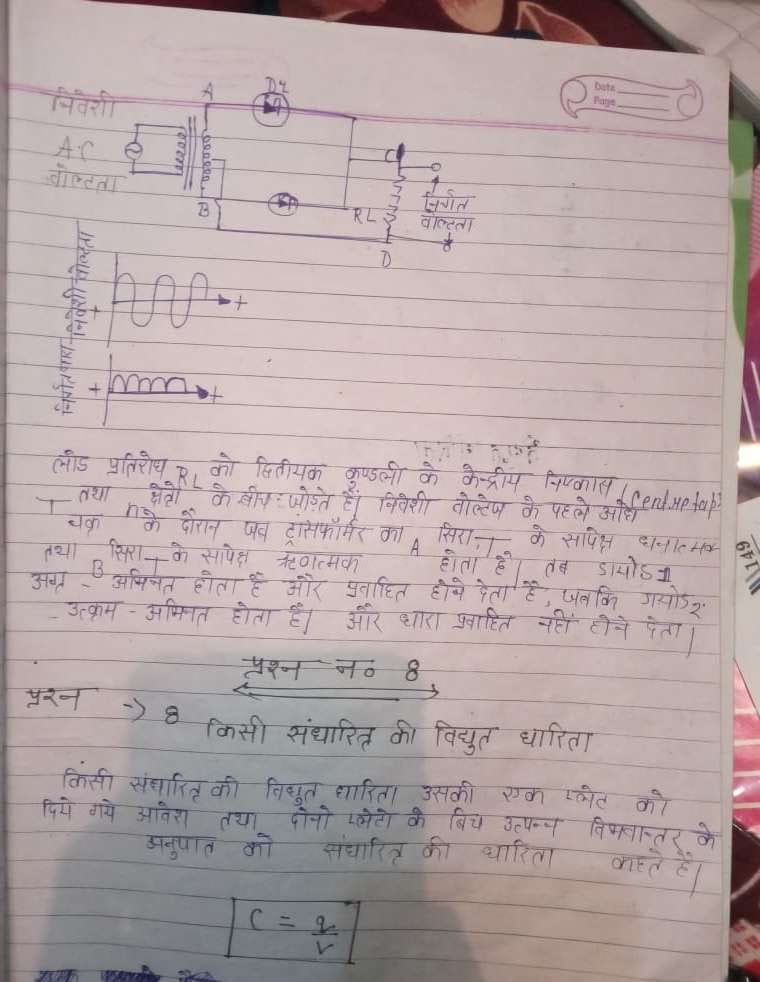 Date
Page
निवेशी
A.C
वोल्टता
A
B
C
RL
D
निर्गत
वोल्टता
निवेशी वोल्टता
+
+
+
लोड प्रतिरोध RL को द्वितीयक कुण्डली के केन्द्रीय निष्कास
T तथा क्षेतो के बीच जोडते है। निवेशी वोल्टेज के पहले आधे
चक्र के दौरान जब ट्रांसफॉर्मर का A सिरा T के सापेक्ष धनात्मक
तथा B सिरा T के सापेक्ष ऋणत्मक होता है। तब डायोड 1
अग्र - अभिनत होता है और प्रवाहित होने देता है, जबकि
उत्क्रम - अभिनत होता है। और धारा प्रवाहित नहीं होने देता।
प्रश्न न० 8
प्रश्न → 8
किसी संधारित्र की विद्युत धारिता
किसी संधारित्र की विद्युत धारिता उसकी एक प्लेट को
दिये गये आवेश तथा दोनो प्लेटो के बिच उत्पन्न विभवान्तर के
अनुपात को संधारित्र की धारिता कहते है।
C = q/v
149